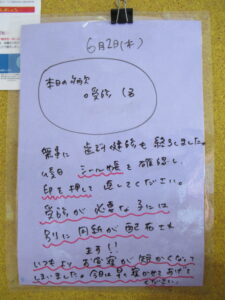 6月2日(木)
本日の
。受診 1名
無事に 歯科健診も終了しました。
後日 シール帳を確認し、
印を押して 返してください。
受診が必要な子には
別に用紙が配布され
ます!!
いつもより お昼寝が短かくなって
しまいました。今日は早く寝かせてあげて
ください。